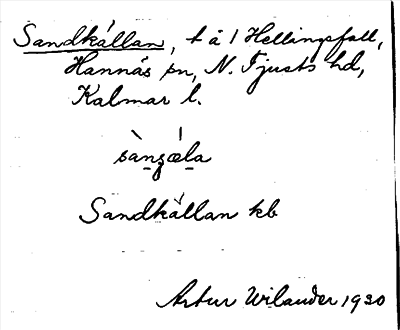 Sandkällan, t å 1 Hellingsfall,
Hannäs sn, N. Tjusts hd,
Kalmar l.
Sandkällan kb
Artur Wilander 1930